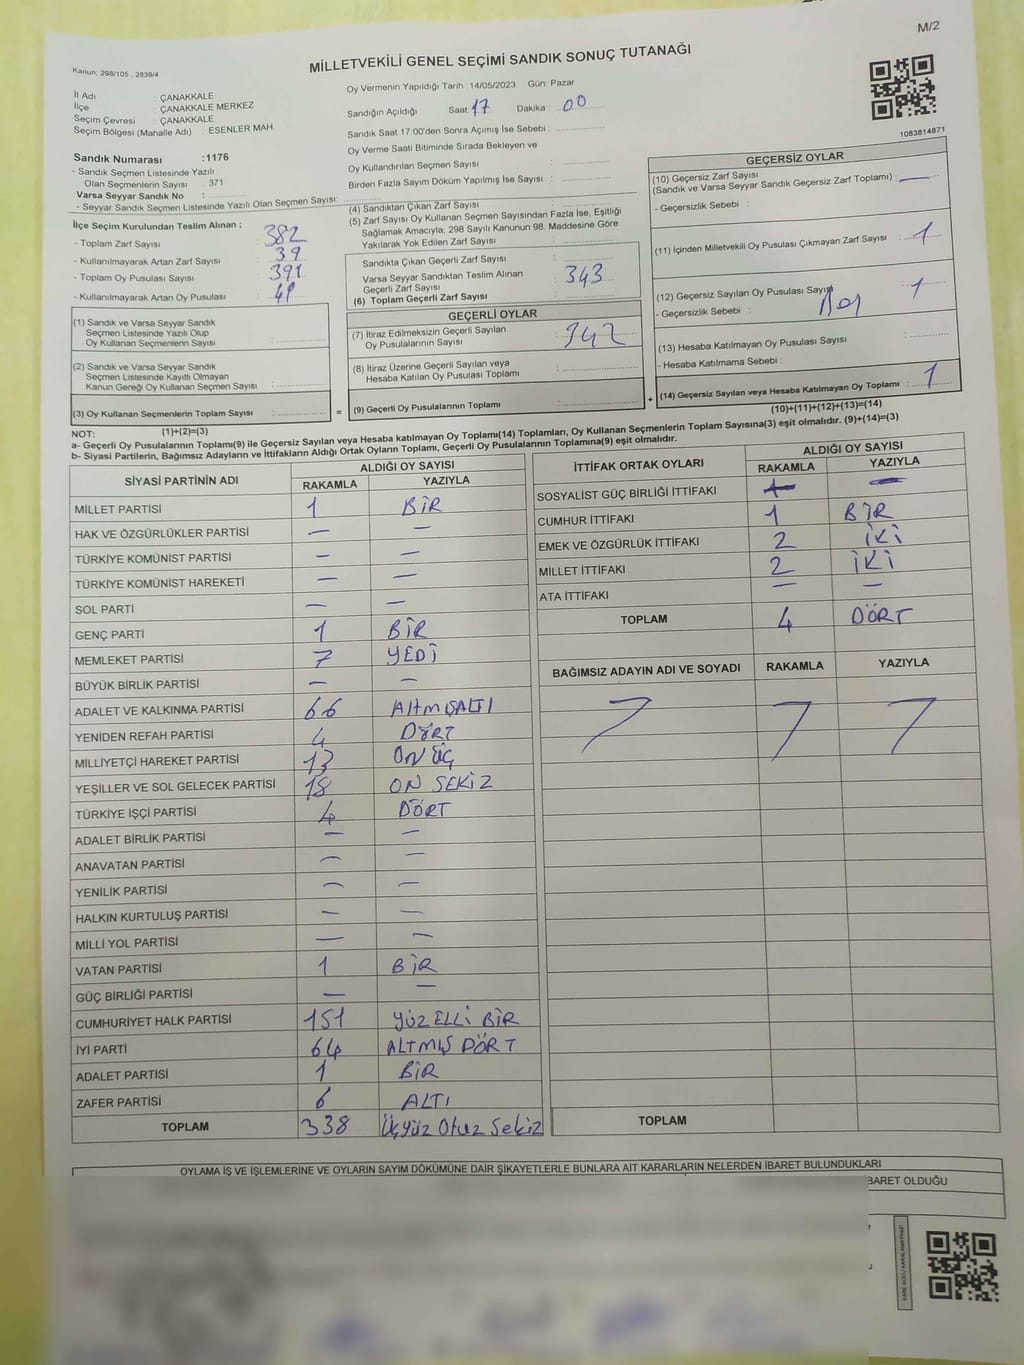 M/2
Kanun: 298/105 , 2839/4
MİLLETVEKİLİ GENEL SEÇİMİ SANDIK SONUÇ TUTANAĞI
İl Adı : ÇANAKKALE
İlçe : ÇANAKKALE MERKEZ
Seçim Çevresi : ÇANAKKALE
Seçim Bölgesi (Mahalle Adı) : ESENLER MAH.
Sandık Numarası :1176
- Sandık Seçmen Listesinde Yazılı
Olan Seçmenlerin Sayısı : 371
Varsa Seyyar Sandık No :
- Seyyar Sandık Seçmen Listesinde Yazılı Olan Seçmen Sayısı:
Oy Vermenin Yapıldığı Tarih :14/05/2023 Gün: Pazar
Sandığın Açıldığı Saat: 17 Dakika : 00
Sandık Saat 17:00'den Sonra Açımış İse Sebebi :
Oy Verme Saati Bitiminde Sırada Bekleyen ve
Oy Kullandırılan Seçmen Sayısı :
Birden Fazla Sayım Döküm Yapılmış İse Sayısı :
1083814871
İlçe Seçim Kurulundan Teslim Alınan ;
- Toplam Zarf Sayısı : 382
- Kullanılmayarak Artan Zarf Sayısı : 39
- Toplam Oy Pusulası Sayısı : 391
- Kullanılmayarak Artan Oy Pusulası :
(1) Sandık ve Varsa Seyyar Sandık
Seçmen Listesinde Yazılı Olup
Oy Kullanan Seçmenlerin Sayısı :
(2) Sandık ve Varsa Seyyar Sandık
Seçmen Listesinde Kayıtlı Olmayan
Kanun Gereği Oy Kullanan Seçmen Sayısı :
(3) Oy Kullanan Seçmenlerin Toplam Sayısı :
(1)+(2)=(3)
(4) Sandıktan Çıkan Zarf Sayısı :
(5) Zarf Sayısı Oy Kullanan Seçmen Sayısından Fazla İse, Eşitliği
Sağlamak Amacıyla, 298 Sayılı Kanunun 98. Maddesine Göre
Yakılarak Yok Edilen Zarf Sayısı :
Sandıkta Çıkan Geçerli Zarf Sayısı :
Varsa Seyyar Sandıktan Teslim Alınan
Geçerli Zarf Sayısı : 343
(6) Toplam Geçerli Zarf Sayısı :
GEÇERLİ OYLAR
(7) İtiraz Edilmeksizin Geçerli Sayılan
Oy Pusulalarının Sayısı : 342
(8) İtiraz Üzerine Geçerli Sayılan veya
Hesaba Katılan Oy Pusulası Toplamı :
= (9) Geçerli Oy Pusulalarının Toplamı : +
GEÇERSİZ OYLAR
(10) Geçersiz Zarf Sayısı
(Sandık ve Varsa Seyyar Sandık Geçersiz Zarf Toplamı) : —
- Geçersizlik Sebebi :
(11) İçinden Milletvekili Oy Pusulası Çıkmayan Zarf Sayısı : 1
(12) Geçersiz Sayılan Oy Pusulası Sayısı : 1
- Geçersizlik Sebebi :
(13) Hesaba Katılmayan Oy Pusulası Sayısı :
- Hesaba Katılmama Sebebi :
(14) Geçersiz Sayılan veya Hesaba Katılmayan Oy Toplamı : 1
(10)+(11)+(12)+(13)=(14)
NOT:
a- Geçerli Oy Pusulalarının Toplamı(9) ile Geçersiz Sayılan veya Hesaba katılmayan Oy Toplamı(14) Toplamları, Oy Kullanan Seçmenlerin Toplam Sayısına(3) eşit olmalıdır. (9)+(14)=(3)
b- Siyasi Partilerin, Bağımsız Adayların ve İttifakların Aldığı Ortak Oyların Toplamı, Geçerli Oy Pusulalarının Toplamına(9) eşit olmalıdır.
SİYASİ PARTİNİN ADI ALDIĞI OY SAYISI
RAKAMLA YAZIYLA
MİLLET PARTİSİ 1 BİR
HAK VE ÖZGÜRLÜKLER PARTİSİ — —
TÜRKİYE KOMÜNİST PARTİSİ — —
TÜRKİYE KOMÜNİST HAREKETİ — —
SOL PARTİ — —
GENÇ PARTİ 1 BİR
MEMLEKET PARTİSİ 7 YEDİ
BÜYÜK BİRLİK PARTİSİ — —
ADALET VE KALKINMA PARTİSİ 66 AltmışALTI
YENİDEN REFAH PARTİSİ 4 DÖRT
MİLLİYETÇİ HAREKET PARTİSİ 13 ON ÜÇ
YEŞİLLER VE SOL GELECEK PARTİSİ 18 ON SEKİZ
TÜRKİYE İŞÇİ PARTİSİ 4 DÖRT
ADALET BİRLİK PARTİSİ — —
ANAVATAN PARTİSİ — —
YENİLİK PARTİSİ — —
HALKIN KURTULUŞ PARTİSİ — —
MİLLİ YOL PARTİSİ — —
VATAN PARTİSİ 1 BİR
GÜÇ BİRLİĞİ PARTİSİ — —
CUMHURİYET HALK PARTİSİ 151 YÜZ ELLİ BİR
İYİ PARTİ 64 ALTMIŞ DÖRT
ADALET PARTİSİ 1 BİR
ZAFER PARTİSİ 6 ALTI
TOPLAM 338 Üçyüz Otuz Sekiz
İTTİFAK ORTAK OYLARI ALDIĞI OY SAYISI
RAKAMLA YAZIYLA
SOSYALİST GÜÇ BİRLİĞİ İTTİFAKI —
CUMHUR İTTİFAKI 1 BİR
EMEK VE ÖZGÜRLÜK İTTİFAKI 2 İKİ
MİLLET İTTİFAKI 2 İKİ
ATA İTTİFAKI — —
TOPLAM 4 DÖRT
BAĞIMSIZ ADAYIN ADI VE SOYADI RAKAMLA YAZIYLA
TOPLAM
OYLAMA İŞ VE İŞLEMLERİNE VE OYLARIN SAYIM DÖKÜMÜNE DAİR ŞİKAYETLERLE BUNLARA AİT KARARLARIN NELERDEN İBARET BULUNDUKLARI
BARET OLDUĞU